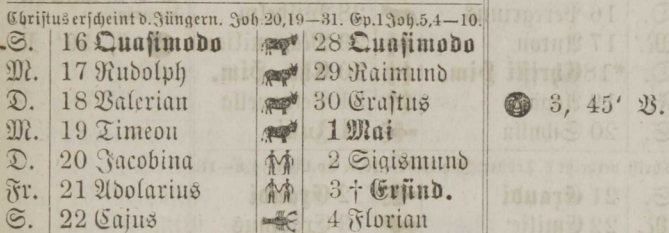 Christus erscheint d. Jüngern. Joh 20,19—31. Ep. 1 Joh. 5,4—10.
S. 16 Quasimodo 28 Quasimodo
M. 17 Rudolph 29 Raimund
D. 18 Valerian 30 Erastus 3, 45' V.
M. 19 Timeon 1 Mai
D. 20 Jacobina 2 Sigismund
Fr. 21 Adolarius 3 † Erfind.
S. 22 Cajus 4 Florian